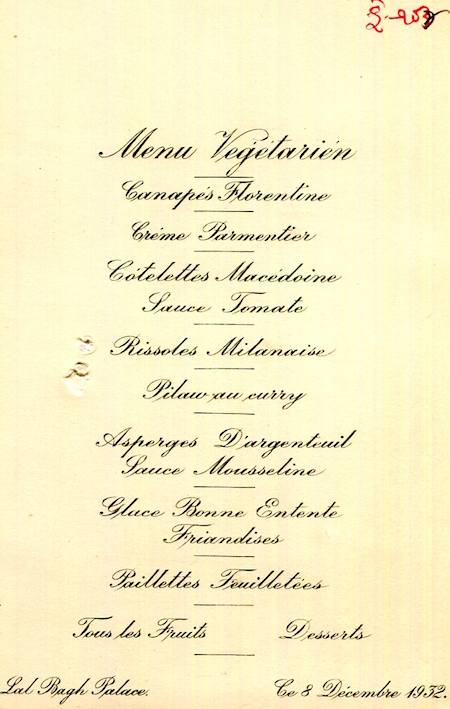 Menu Végétarién
Canapés Florentine
Créme Parmentier
Côtelettes Macédoine
Sauce Tomate
Rissoles Milanaise
Pilaw au curry
Asperges D'argenteuil
Sauce Mousseline
Glace Bonne Entente
Friandises
Paillettes Feuilletées
Tous les Fruits Desserts
Lal Bagh Palace. Ce 8 Décembre 1932.